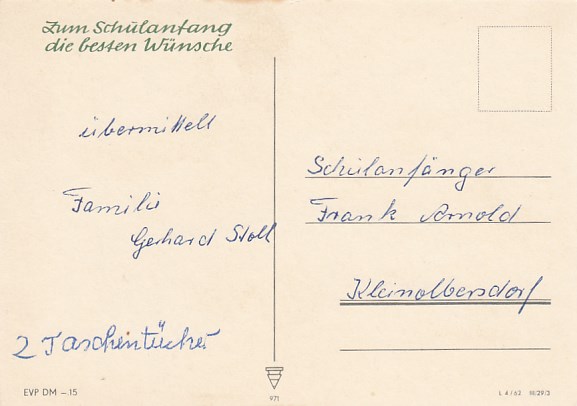 Zum Schulanfang
die besten Wünsche
übermittelt
Familie
Gerhard Stoll
2 Taschentücher
Schulanfänger
Frank Arnold
Kleinolbersdorf
EVP DM – 15
971
L 4/62 III/29/2